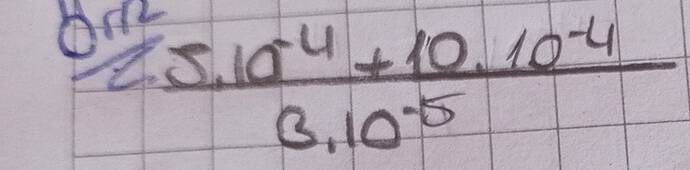 5.10⁻⁴ + 10.10⁻⁴
3.10⁻⁵